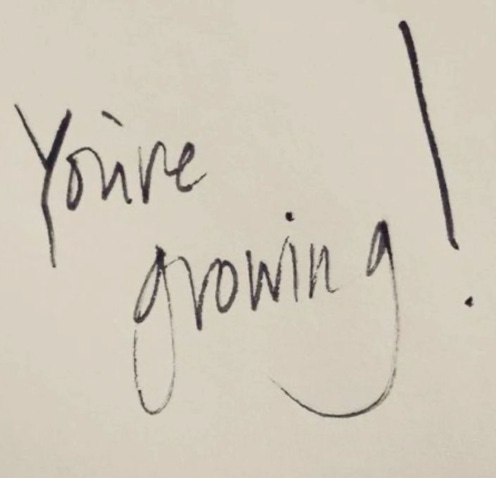 You're
growing!